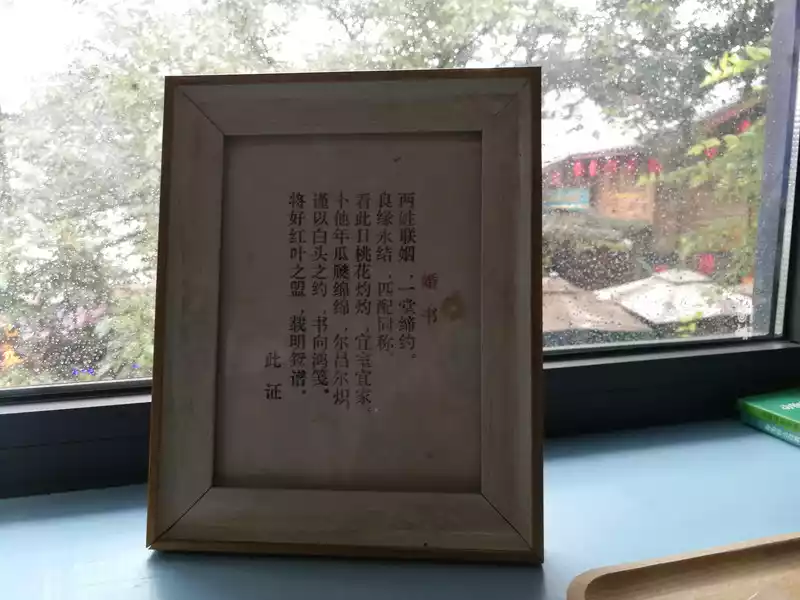 婚书
两姓联姻，一堂缔约。
良缘永结，匹配同称。
看此日桃花灼灼，宜室宜家，
卜他年瓜瓞绵绵，尔昌尔炽。
谨以白头之约，书向鸿笺。
将好红叶之盟，载明鸳谱。
此证